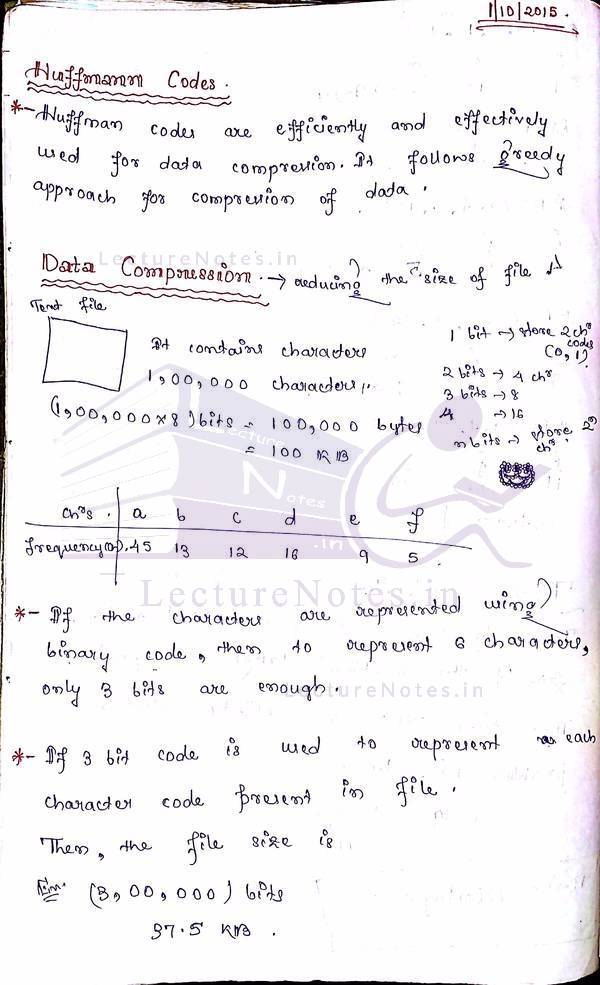 1/10/2015.
Huffmann Codes.
*- Huffman codes are efficiently and effectively
used for data compression. It follows greedy
approach for compression of data.
LectureNotes.in
Data Compression. → reducing the size of file
Text file
It contains characters
1,00,000 characters,,
(1,00,000x8)bits = 100,000 bytes
= 100 KB
1 bit → store 2 chrs
codes
(0,1).
2 bits → 4 chrs
3 bits → 8
4 → 16
n bits → store 2ⁿ
chrs.
Lecture
Notes
.in
chrs. a b c d e f
frequency 45 13 12 16 9 5.
LectureNotes.in
*- If the characters are represented using
binary code, then to represent 6 characters,
only 3 bits are enough.
LectureNotes.in
*- If 3 bit code is used to represent each
character code present in file.
Then, the file size is
(3,00,000) bits
37.5 KB.